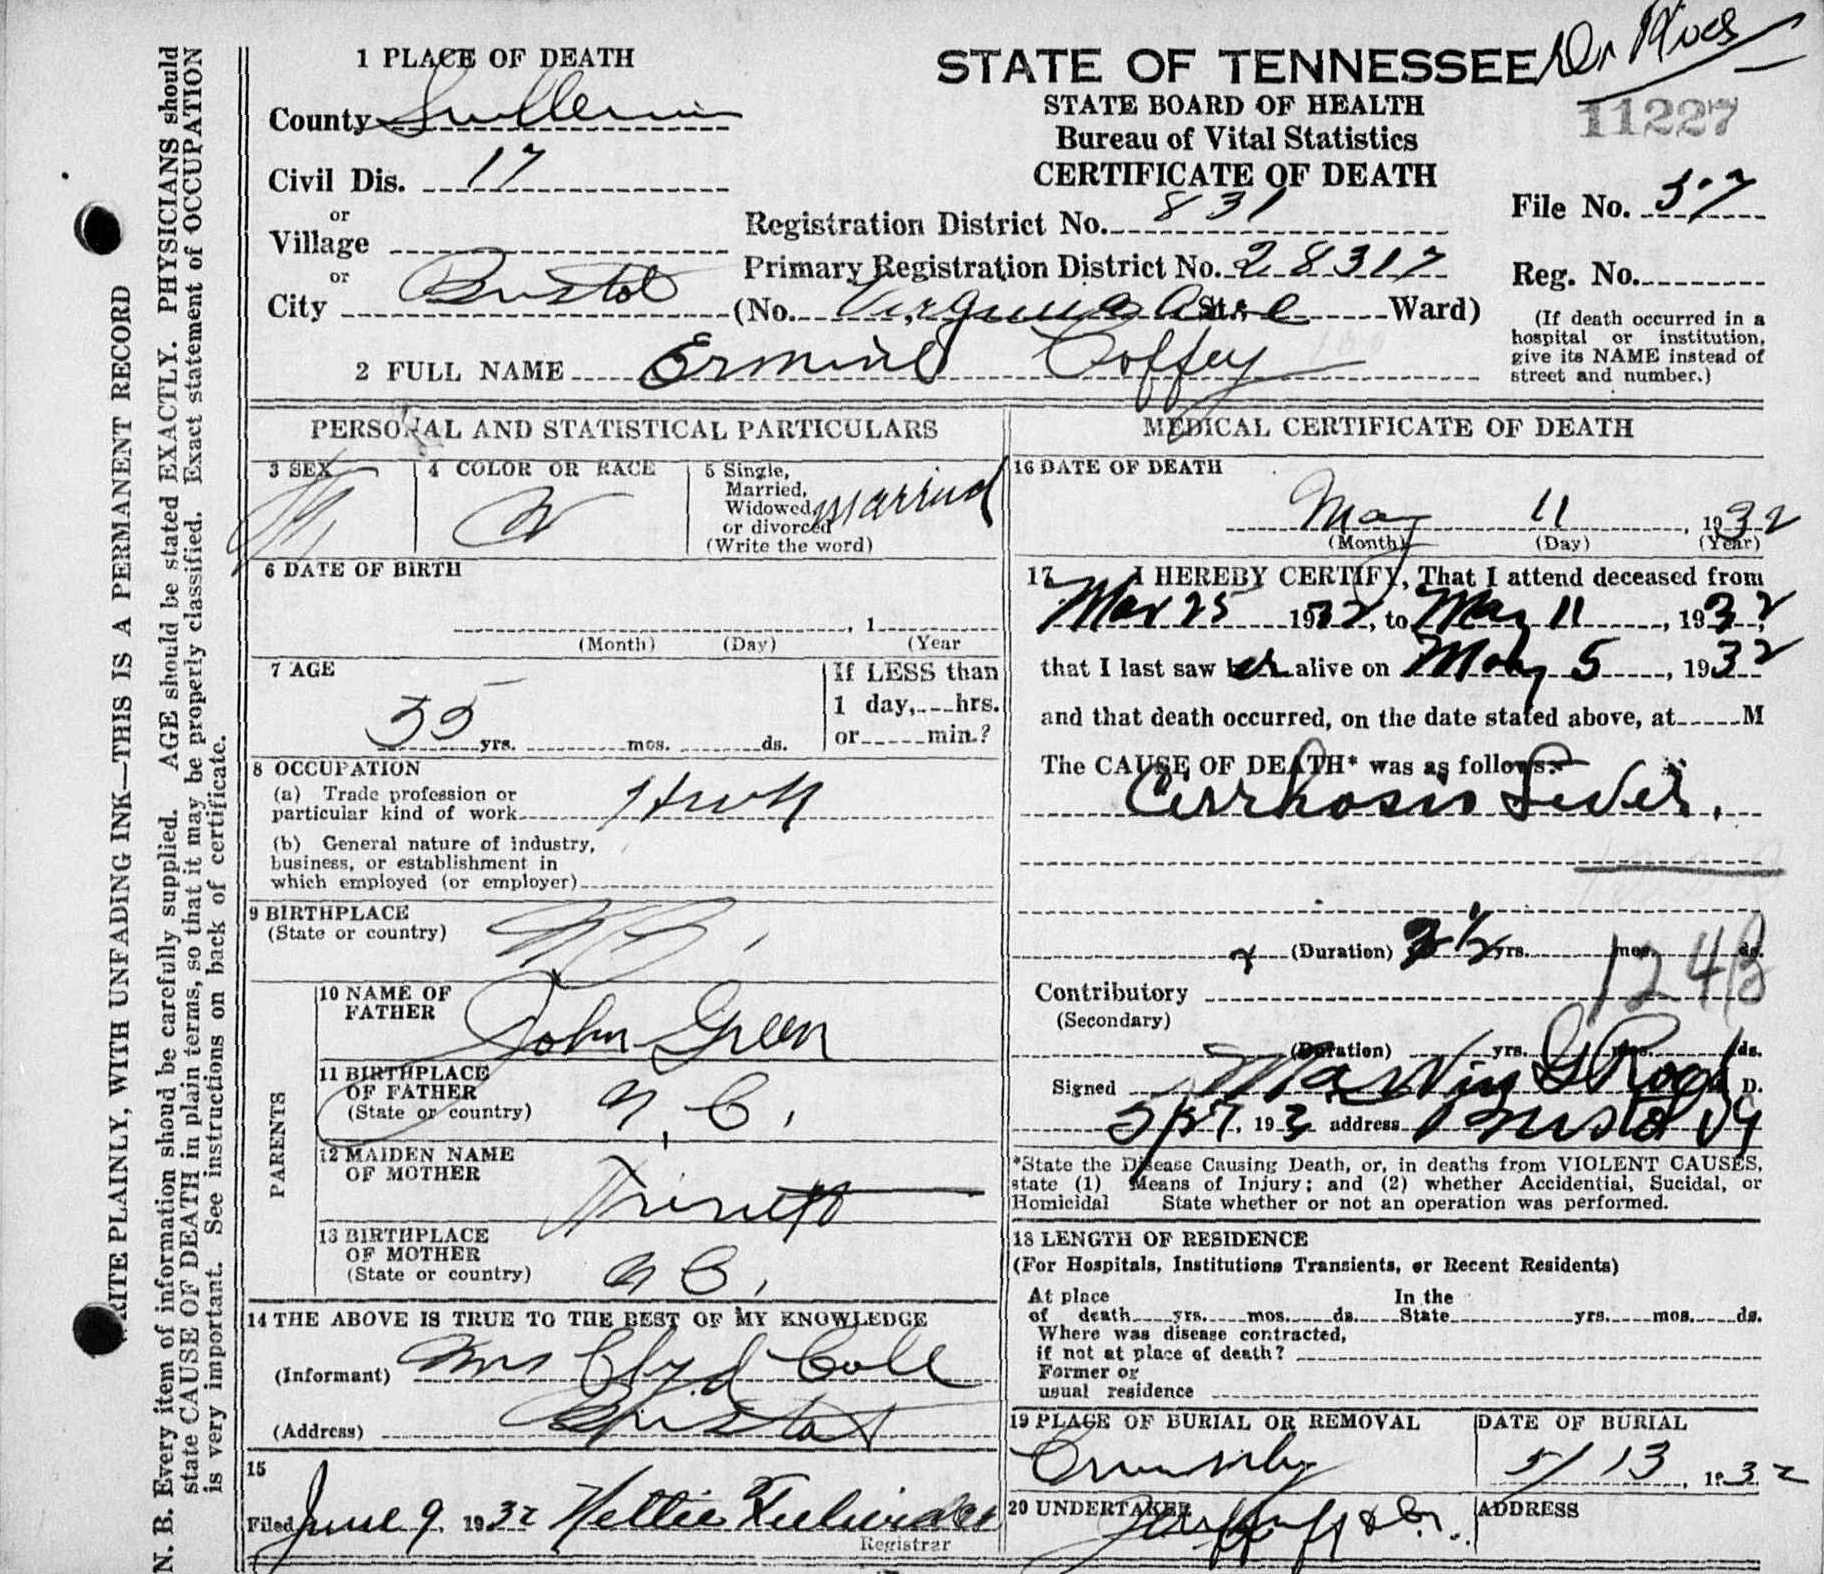 1 PLACE OF DEATH
County Sullivan
Civil Dis. 17
or
Village
or
City Bristol
STATE OF TENNESSEE
STATE BOARD OF HEALTH
Bureau of Vital Statistics
CERTIFICATE OF DEATH
Dr
11227
Registration District No. 831
File No. 57
Primary Registration District No. 28317
Reg. No.
(No. Virginia Ave St.; Ward)
(If death occurred in a
hospital or institution,
give its NAME instead of
street and number.)
2 FULL NAME Ermine Coffey
PERSONAL AND STATISTICAL PARTICULARS
3 SEX
4 COLOR OR RACE W
5 Single,
Married,
Widowed,
or divorced
(Write the word) married
6 DATE OF BIRTH
, 1
(Month) (Day) (Year
7 AGE
55 yrs. mos. ds.
If LESS than
1 day, hrs.
or min.?
8 OCCUPATION
(a) Trade profession or
particular kind of work
(b) General nature of industry,
business, or establishment in
which employed (or employer)
9 BIRTHPLACE
(State or country) N C,
PARENTS
10 NAME OF
FATHER John Green
11 BIRTHPLACE
OF FATHER
(State or country) N. C.
12 MAIDEN NAME
OF MOTHER
13 BIRTHPLACE
OF MOTHER
(State or country) N C,
14 THE ABOVE IS TRUE TO THE BEST OF MY KNOWLEDGE
(Informant) Mrs Clyd Cole
(Address) Bristol
15
Filed June 9 1932 Nellie
Registrar
MEDICAL CERTIFICATE OF DEATH
16 DATE OF DEATH
May 11, 1932
(Month) (Day) (Year)
17 I HEREBY CERTIFY, That I attend deceased from
Mar 25 1932, to May 11, 1932,
that I last saw her alive on May 5, 1932
and that death occurred, on the date stated above, at M
The CAUSE OF DEATH* was as follows:
Cirrhosis Liver.
(Duration) 2 1/2 yrs. mos. ds.
124B
Contributory
(Secondary)
(Duration) yrs. mos. ds.
Signed Marvin G M. D.
5/27, 193 address Bristol Va
*State the Disease Causing Death, or, in deaths from VIOLENT CAUSES,
state (1) Means of Injury; and (2) whether Accidential, Sucidal, or
Homicidal State whether or not an operation was performed.
18 LENGTH OF RESIDENCE
(For Hospitals, Institutions Transients, or Recent Residents)
At place In the
of death yrs. mos. ds. State yrs. mos. ds.
Where was disease contracted,
if not at place of death?
Former or
usual residence
19 PLACE OF BURIAL OR REMOVAL
DATE OF BURIAL
5/13, 1932
20 UNDERTAKER
ADDRESS
N. B. Every item of information shoud be carefully supplied. AGE should be stated EXACTLY. PHYSICIANS should
state CAUSE OF DEATH in plain terms, so that it may be properly classified. Exact statement of OCCUPATION
is very important. See instructions on back of certificate.
WRITE PLAINLY, WITH UNFADING INK—THIS IS A PERMANENT RECORD